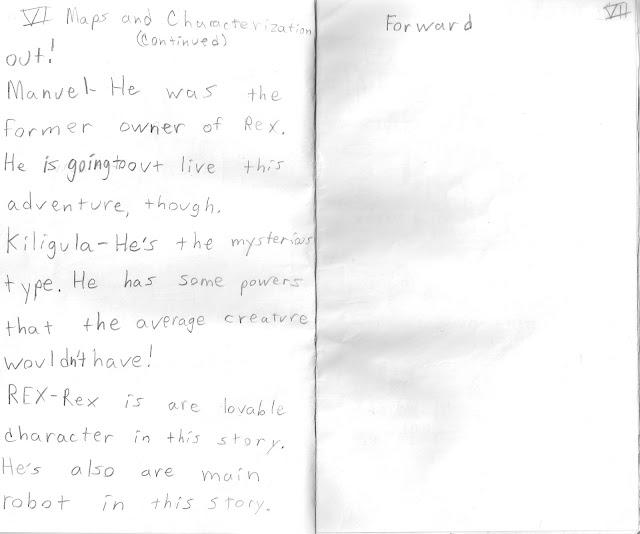 VI Maps and Characterization
(Continued)
out!
Manuel- He was the
former owner of Rex.
He is going to out live this
adventure, though.
Kiligula- He's the mysterious
type. He has some powers
that the average creature
wouldn't have!
REX-Rex is are lovable
character in this story.
He's also are main
robot in this story.
VII
Forward